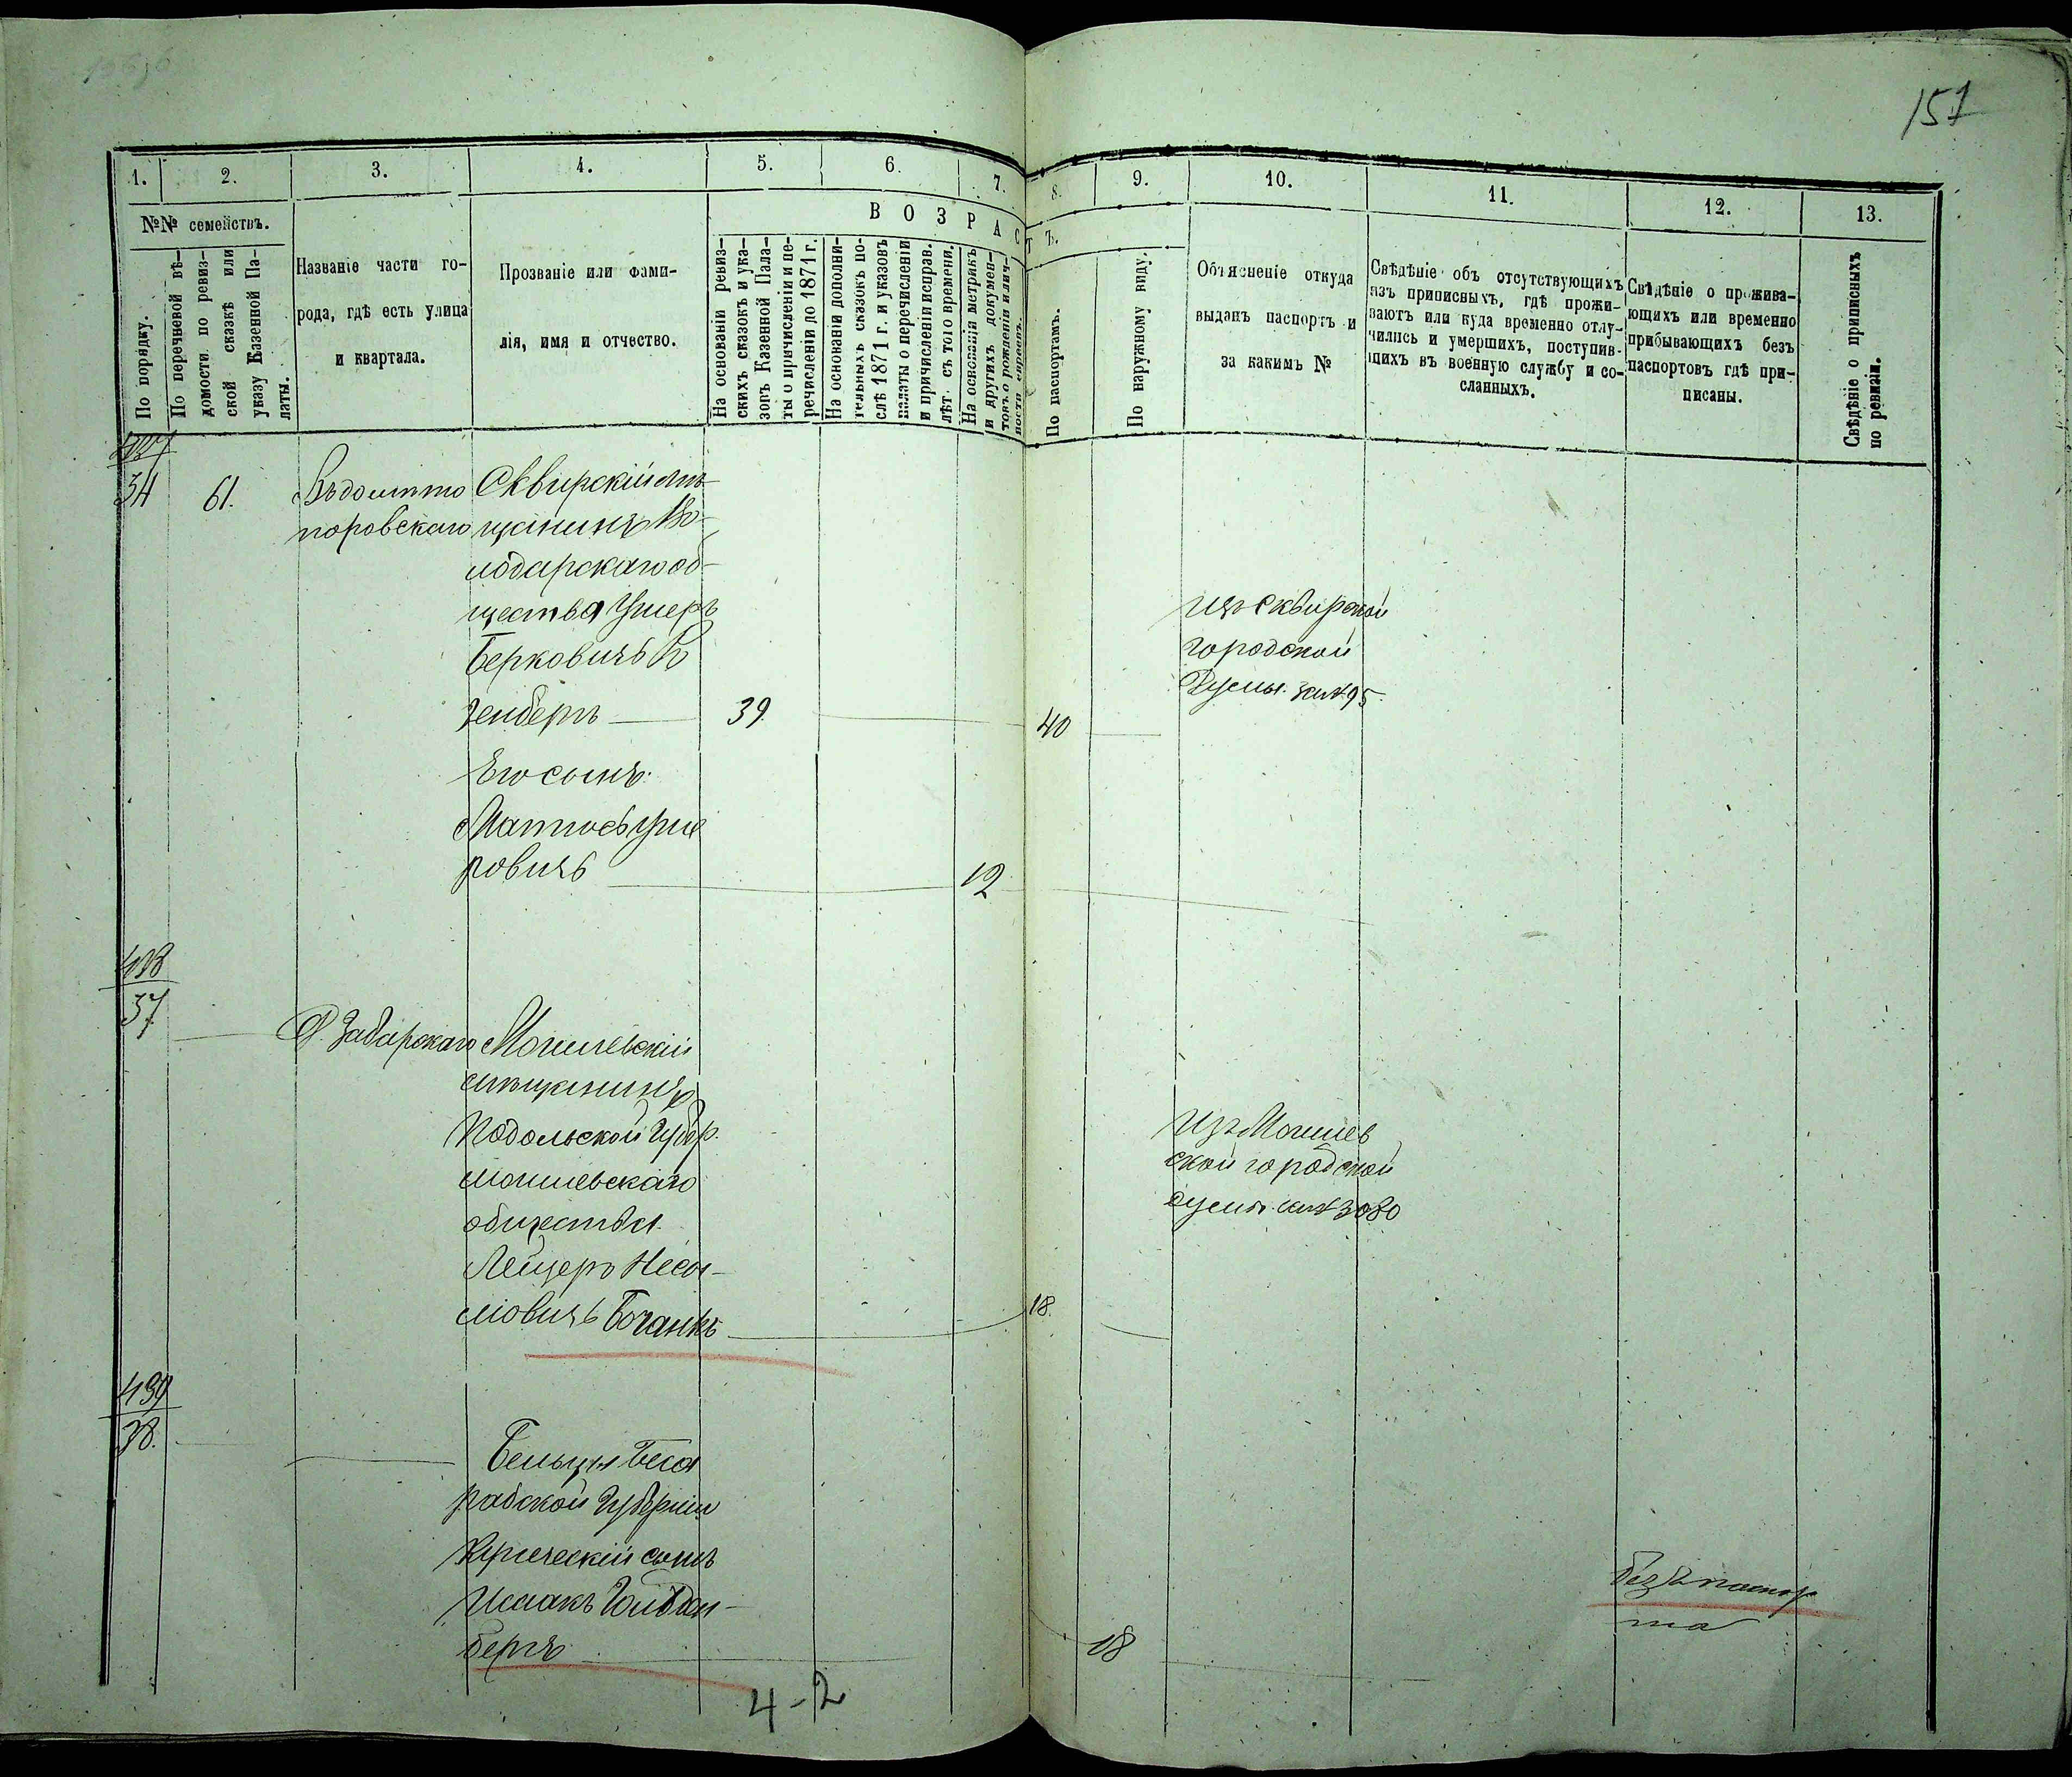 157
1. 2. 3. 4. 5. 6. 7. 8. 9. 10. 11. 12. 13.
№№ семействъ.
По порядку.
По перечневой вѣ-
домости. по ревиз-
ской сказкѣ или
указу Казенной Па-
латы.
Названіе части го-
рода, гдѣ есть улица
и квартала.
Прозваніе или фами-
лія, имя и отчество.
ВОЗРАСТЪ.
На основаніи ревиз-
скихъ сказокъ и ука-
зовъ Казенной Пала-
ты о причисленіи и пе-
речисленіи до 1871 г.
На основаніи дополни-
тельныхъ сказокъ по-
слѣ 1871 г. и указовъ
палаты о перечисленіи
и причисленіи исправ.
лѣт. съ того времени.
На основаніи метрикъ
и другихъ докумен-
товъ о рожденіи или
По паспортамъ.
По наружному виду.
Объясненіе откуда
выданъ паспортъ и
за какимъ №
Свѣдѣніе объ отсутствующихъ
изъ приписныхъ, гдѣ прожи-
ваютъ или куда временно отлу-
чились и умершихъ, поступив-
шихъ въ военную службу и со-
сланныхъ.
Свѣдѣніе о прожива-
ющихъ или временно
прибывающихъ безъ
паспортовъ гдѣ при-
писаны.
Свѣдѣніе о приписныхъ
по ревизіи.
34 61.
поровскаго
Сквирскій мѣ-
щанинъ Во-
лодарскаго об-
щества Ушеръ
Берковичъ
генберъ 39 40
изъ Сквирской
городской
Думы. за № 95.
Его сынъ.
Матю Уше
ровичъ 12
438
37
Д. Забарскаго
Могилевскій
мѣщанинъ
Подольской Губер.
могилевскаго
общества
Лейзеръ Несы-
мовичъ Боганкъ 18.
Изъ Могилев
ской городской
думы за № 3080
439
38.
Бельцы Беса
рабской Губерніи
Купеческій сынъ
Исаакъ Голдден-
бергъ 18
безъ паспор
та
4-2